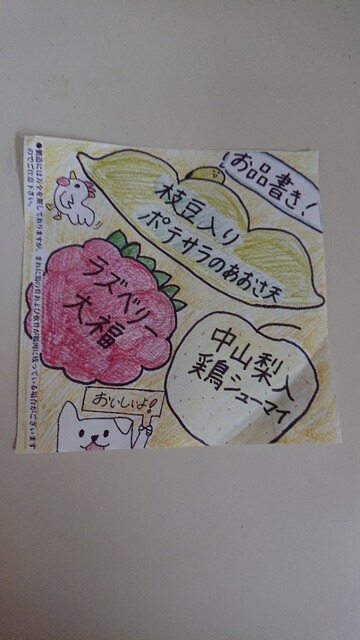 お品書き!
枝豆入り
ポテサラのあおさ天
ラズベリー
大福
中山梨入
鶏シューマイ
おいしいよ!
●製造には万全を期しておりますが、まれに脂の骨および枝骨が鶏肉に残っている場合がございます
のでご注意下さい。